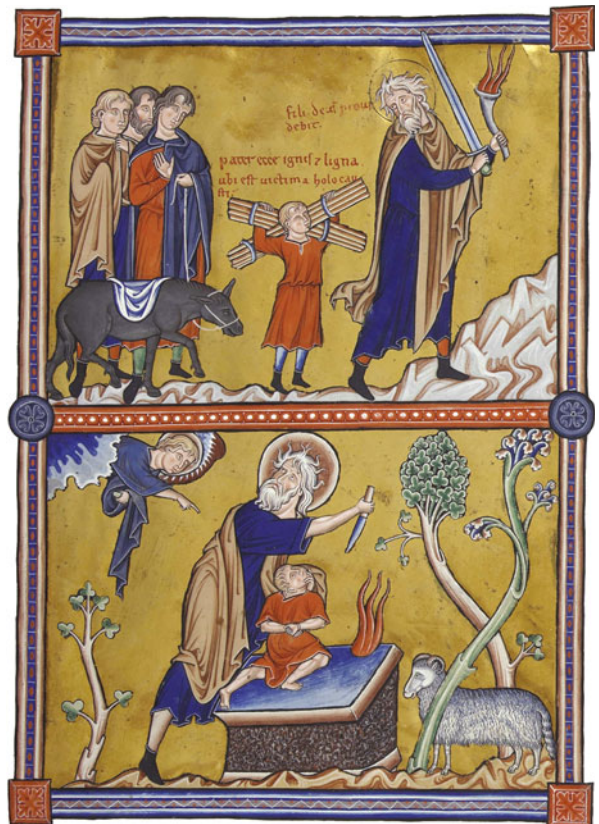 fili. de
debit.
pater ecce ignis ⁊ ligna
ubi est uictima holocau
sti.